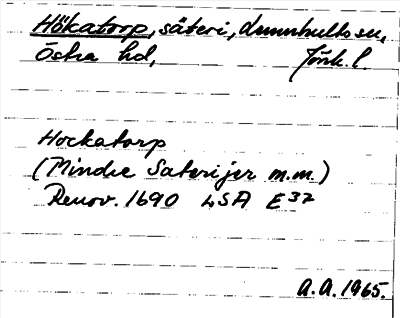 Hökatorp, säteri, Lemnhults sn,
Östra hd, Jönk. l.
Hockatorp
(Mindre Säterijer m.m.)
Renov. 1690 LSA E 32
A.A. 1965.